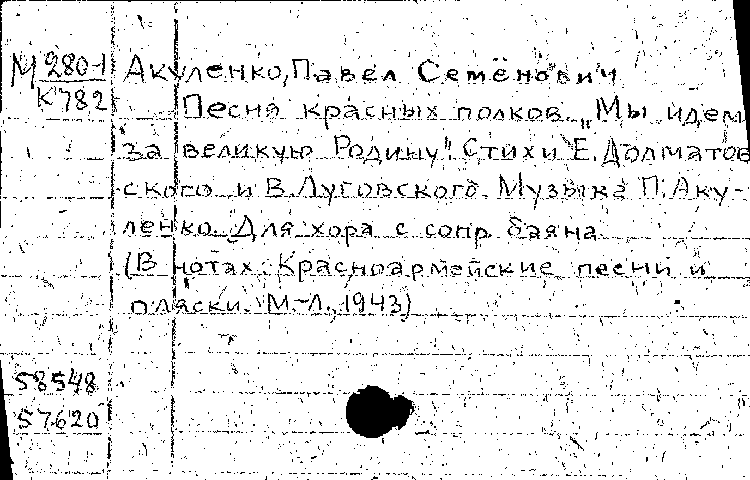 М 280-1 Акуленко, Павел Семёнович
К782 Песня красных полков. „Мы идем
за великую Родину". Стихи Е. Долматов
ского и В. Луговского. Музыка П. Аку-
ленко. Для хора с сопр. баяна
(В нотах: Красноармейские песни и
пляски. М.-Л., 1943)
58548
57620